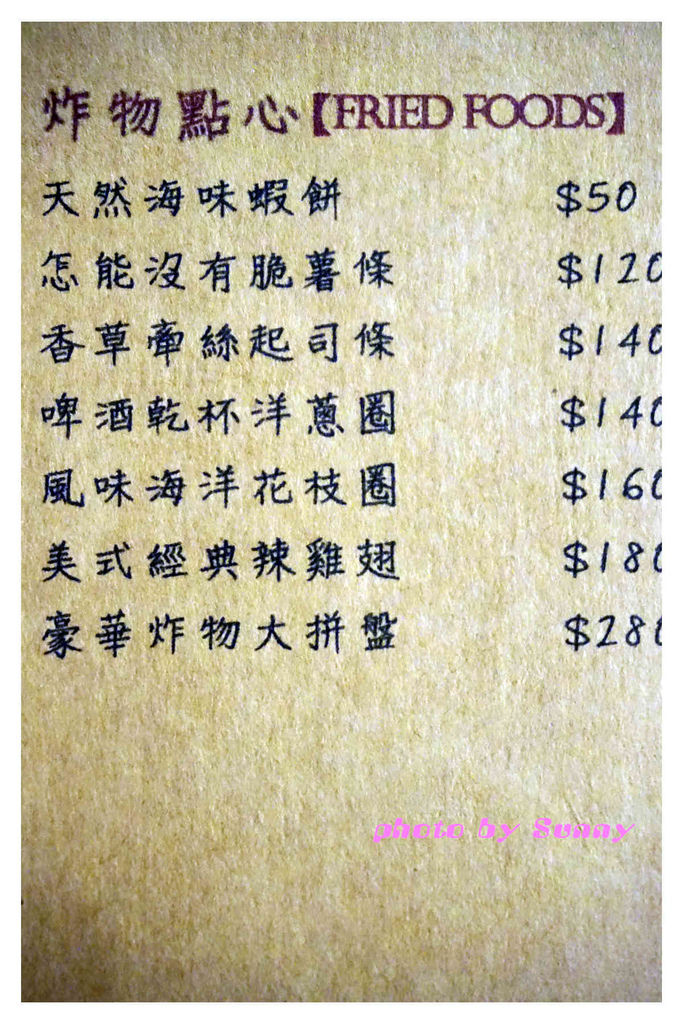 炸物點心【FRIED FOODS】
天然海味蝦餅 $50
怎能沒有脆薯條 $120
香草牽絲起司條 $140
啤酒乾杯洋蔥圈 $140
風味海洋花枝圈 $160
美式經典辣雞翅 $180
豪華炸物大拼盤 $280
photo by Sunny